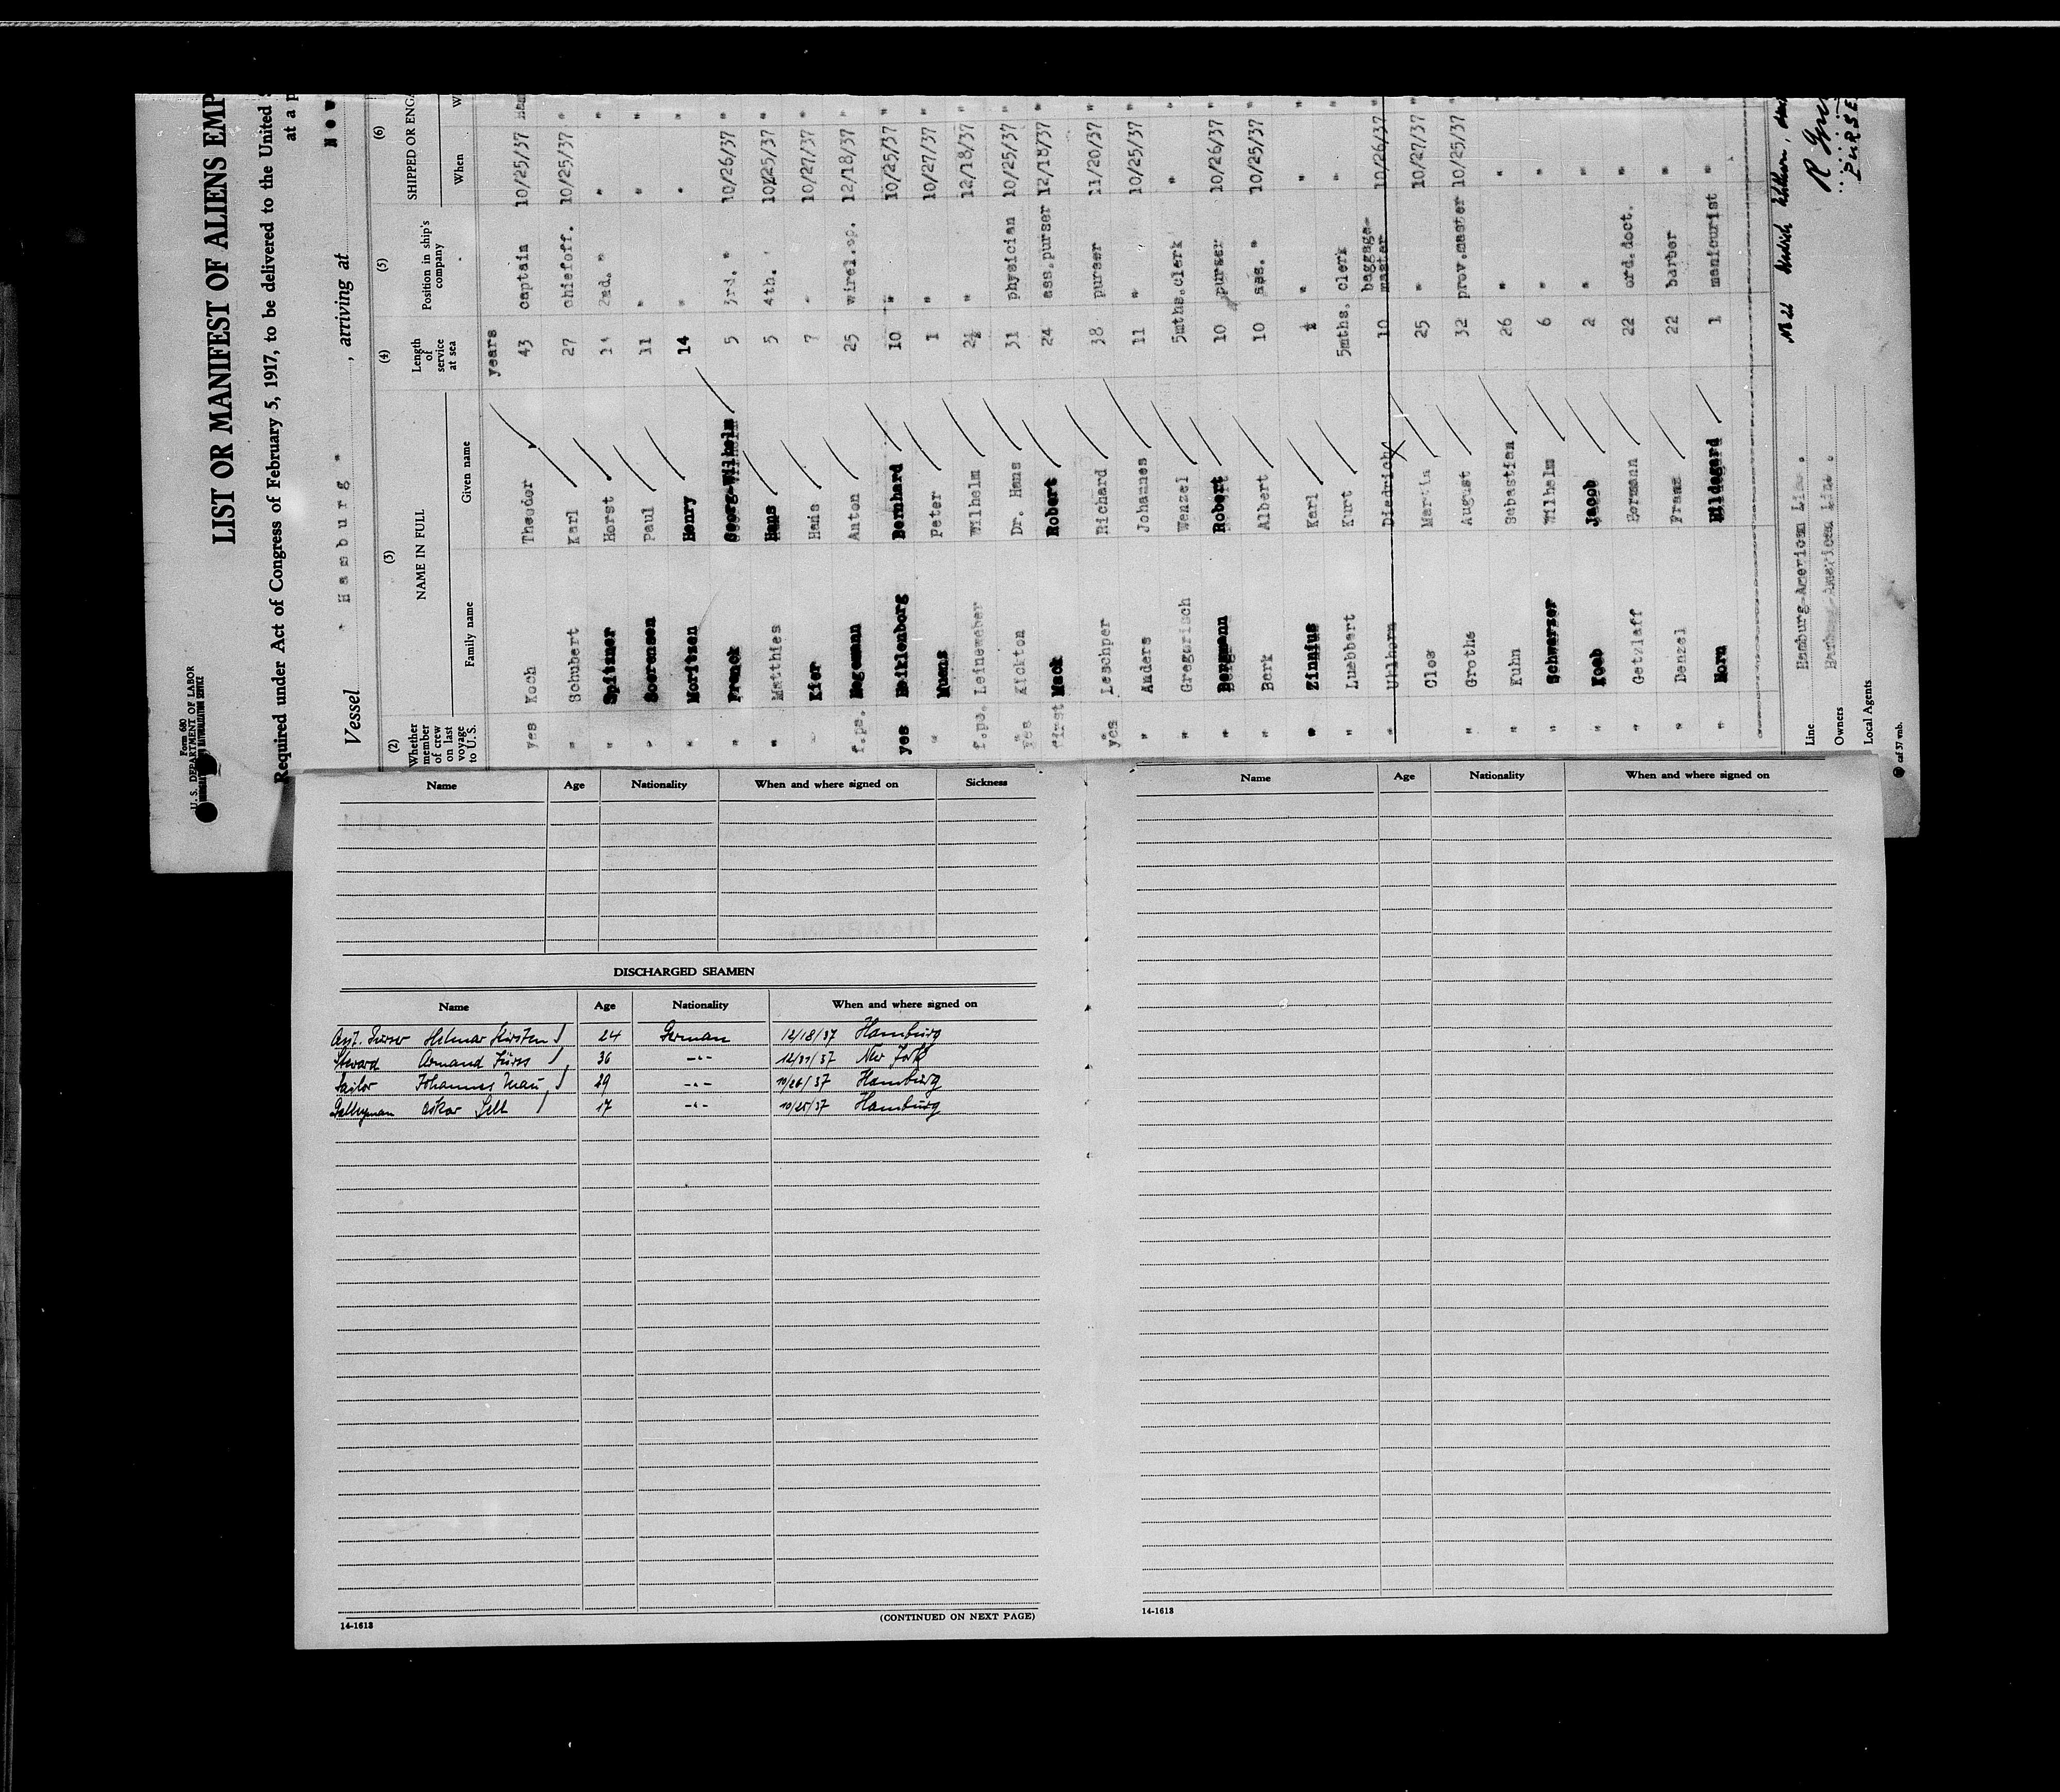 Form 680
U. S. DEPARTMENT OF LABOR
IMMIGRATION AND NATURALIZATION SERVICE
LIST OR MANIFEST OF ALIENS EMP
Required under Act of Congress of February 5, 1917, to be delivered to the United
at a p
Vessel " Hamburg " , arriving at New
(2) (3) (4) (5) (6)
Whether member of crew on last voyage to U. S. NAME IN FULL Length of service at sea Position in ship's company SHIPPED OR ENGA
Family name Given name When W
years
yes Koch Theodor 43 captain 10/25/37 Ham
" Schubert Karl 27 chiefoff. 10/25/37 "
" Spitzner Horst 14 2nd. " " "
" Soerensen Paul 11 " " "
" Moritzen Henry 14 " " "
" Prenck Georg-Wilhelm 5 3rd. " 10/26/37 "
" Matthies Hans 5 4th. " 10/25/37 "
" Kier Hans 7 " 10/27/37 "
f.ps. Hagemann Anton 25 wirel.op. 12/18/37 "
yes Heiklenborg Bernhard 10 " 10/25/37 "
" Muens Peter 1 " 10/27/37 "
f.ps. Leineweber Wilhelm 2½ " 12/18/37 "
yes Kickton Dr. Hans 31 physician 10/25/37 "
first Mack Robert 24 ass.purser 12/18/37 "
yes Leschper Richard 38 purser 11/20/37 "
" Anders Johannes 11 " 10/25/37 "
" Gregorisch Wenzel 5mths. clerk "
" Bergmann Robert 10 purser 10/26/37 "
" Berk Albert 10 ass. " 10/25/37 "
" Zinnius Karl ½ " " "
" Luebbert Kurt 5mths. clerk " "
" Uhlhorn Diedrich 10 baggage-master 10/26/37 "
" Clos Martin 25 " 10/27/37 "
" Grothe August 32 prov.master 10/25/37 "
" Kuhn Sebastian 26 " " "
" Schwarzer Wilhelm 6 " " "
" Koeb Jacob 2 " " "
" Getzlaff Hermann 22 ord.doct. " "
" Denzel Franz 22 barber " "
" Horn Hildegard 1 manicurist " "
Line Hamburg-American Line.
Owners Hamburg-American Line.
Local Agents
PURSE
Name Age Nationality When and where signed on Sickness
DISCHARGED SEAMEN
Name Age Nationality When and where signed on
Asst. Purser Hilmar Kirsten 24 German 12/18/37 Hamburg
Steward Armand 36 -"- 12/31/37 New York
Sailor Johannes Mau 29 -"- 10/26/37 Hamburg
Galleyman Oskar Sell 17 -"- 10/25/37 Hamburg
14-1613 (CONTINUED ON NEXT PAGE)
Name Age Nationality When and where signed on
14-1613